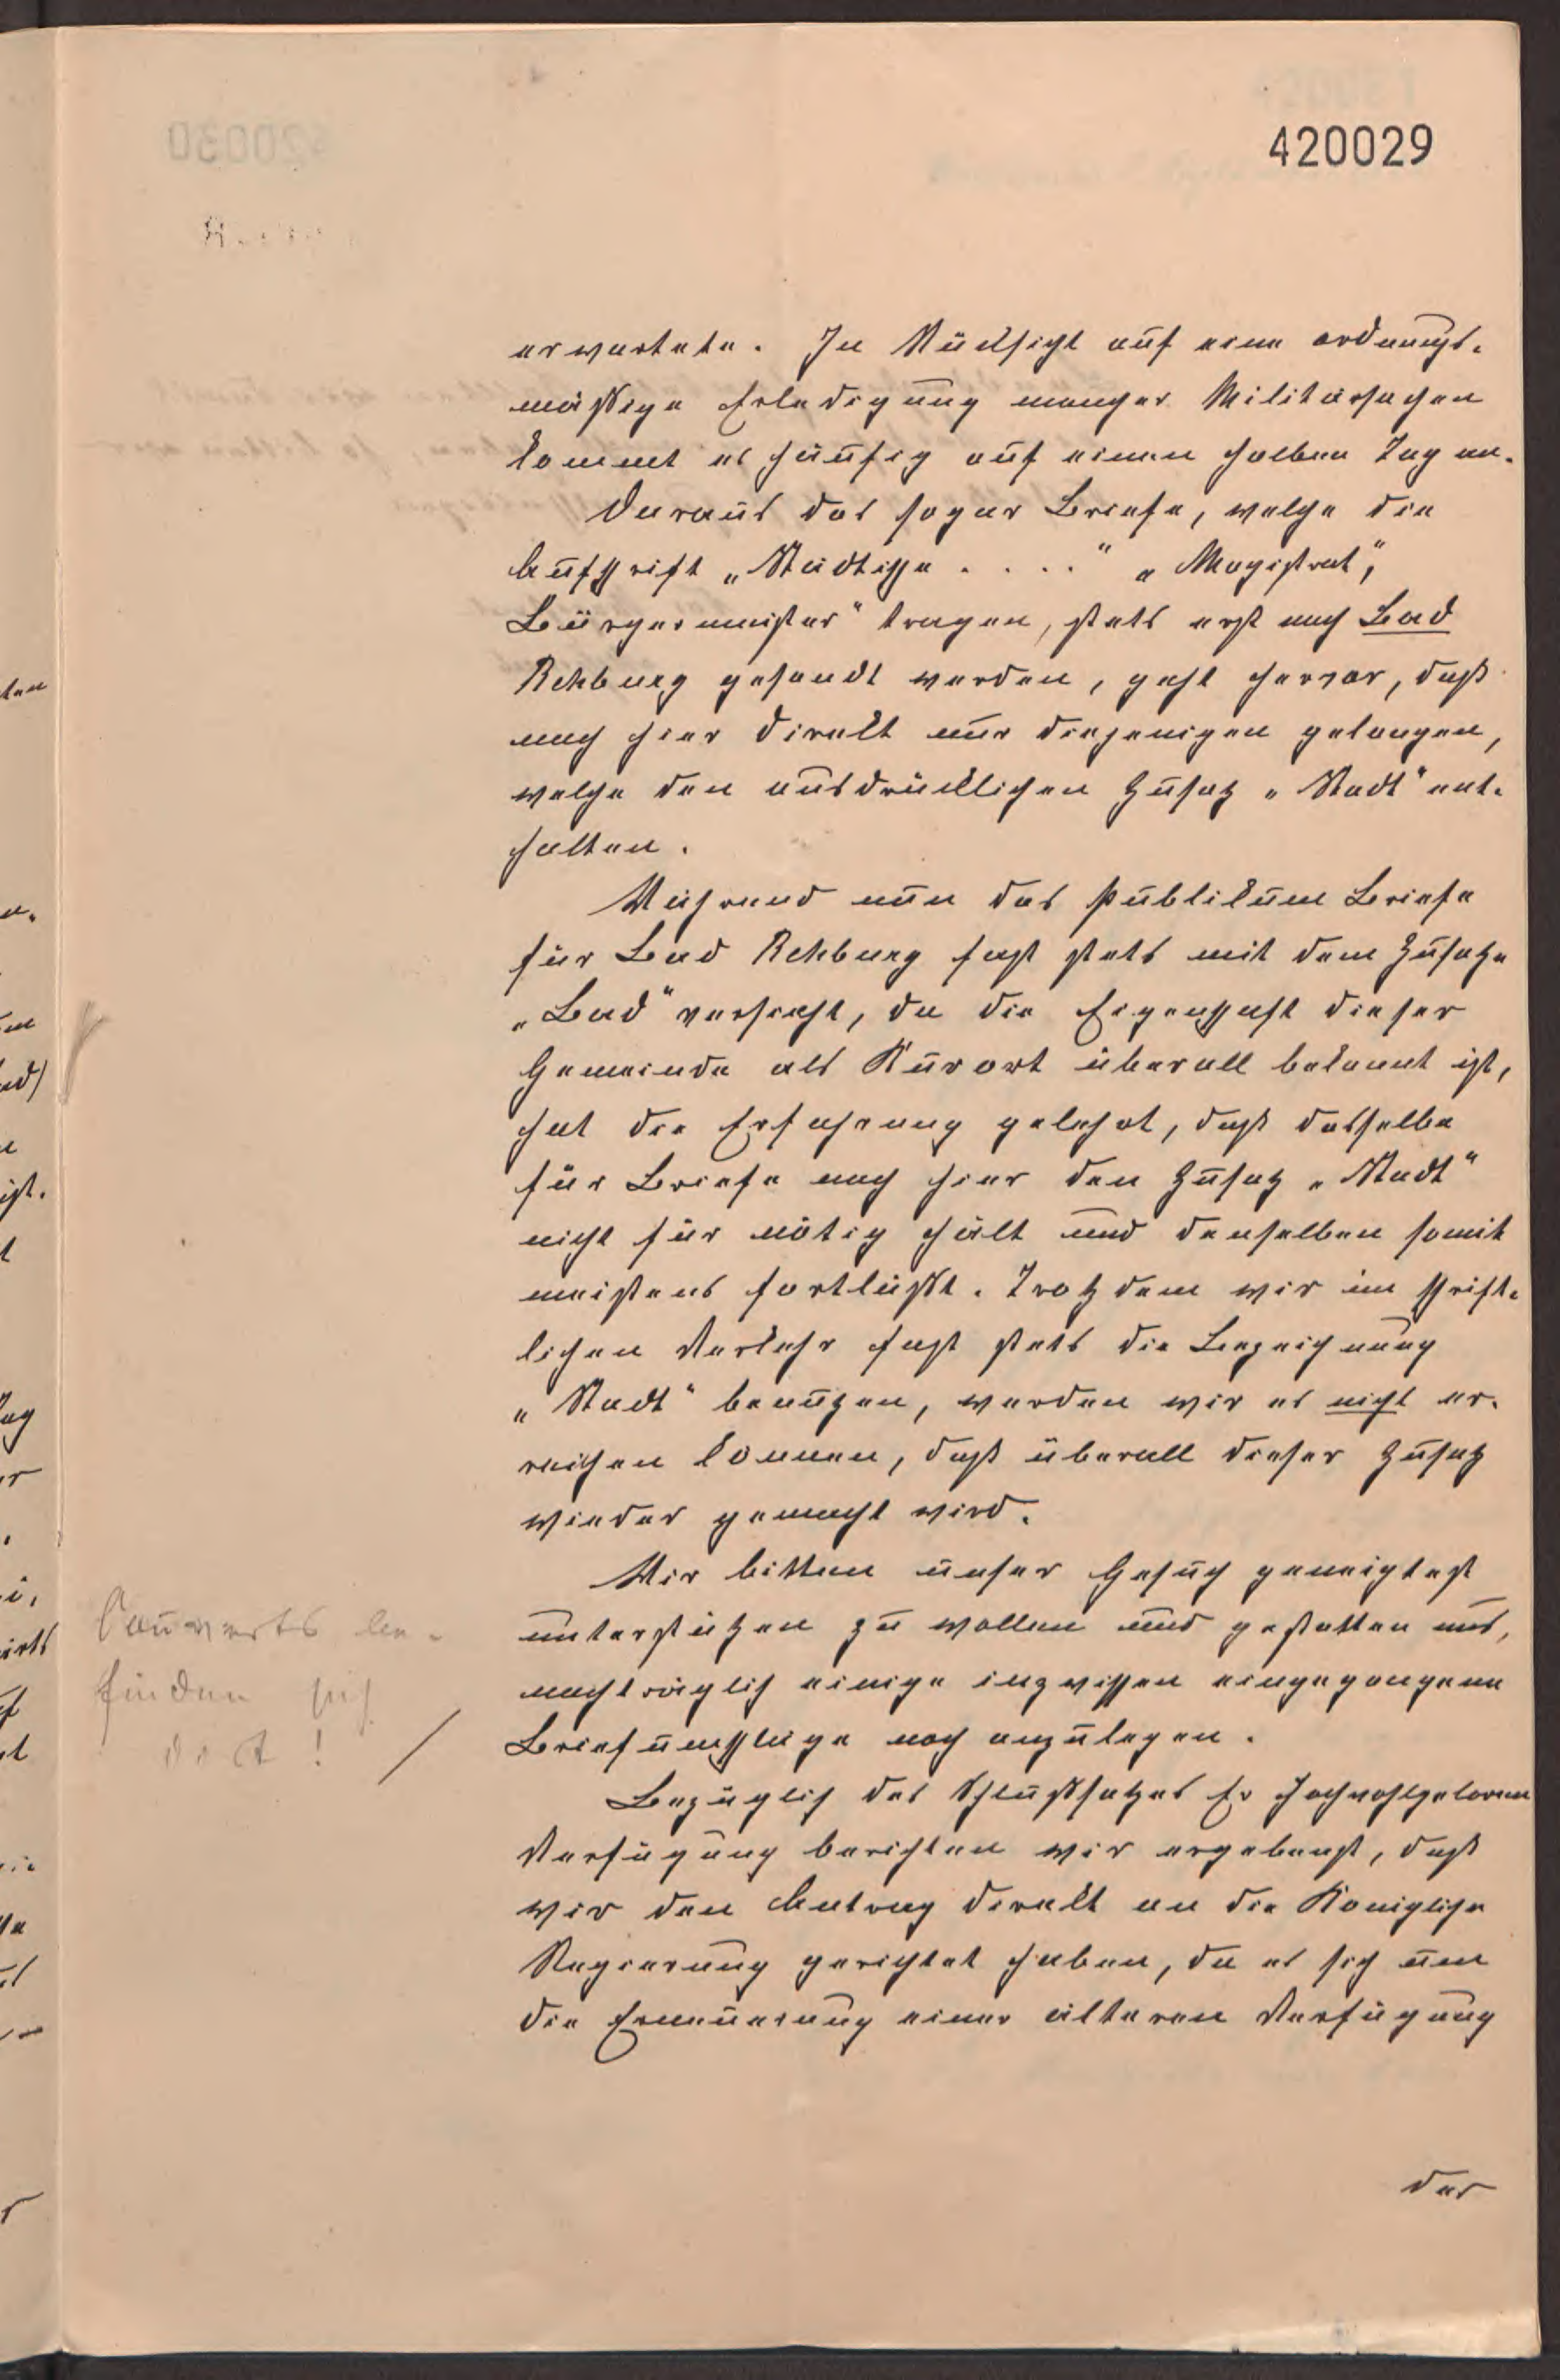 420029
erwartete. In Rücksicht auf eine ordnungs-
mäßige Erledigung mancher Militärsachen
kommt es häufig auf einen halben Tag an.
Daraus das sogar Briefe, welche die
Aufschrift „Städtische . . . .“ „Magistrat“,
Bürgermeister“ tragen, stets erst nach Bad
Rehburg gesandt werden, geht hervor, daß
nach hier direkt nur diejenigen gelangen,
welche den ausdrücklichen Zusatz „Stadt“ ent-
halten.
Während nun das Publikum Briefe
für Bad Rehburg fast stets mit dem Zusatze
„Bad“ versieht, da die Eigenschaft dieser
Gemeinde als Kurort überall bekannt ist,
hat die Erfahrung gelehrt, daß dasselbe
für Briefe nach hier den Zusatz „Stadt“
nicht für nötig hält und denselben somit
meistens fortläßt. Trotzdem wir im schrift-
lichen Verkehr fast stets die Bezeichnung
„Stadt“ benutzen, werden wir es nicht er-
reichen können, daß überall dieser Zusatz
wieder gemacht wird.
Wir bitten unser Gesuch geneigtest
unterstützen zu wollen und gestatten uns,
nachträglich einige inzwischen eingegangene
Briefumschläge noch anzulegen.
Couverts be-
finden sich
dort!
Bezüglich des Schlußsatzes Ew Hochwohlgeboren
Verfügung berichten wir ergebenst, daß
wir den Antrag direkt an die Königliche
Regierung gerichtet haben, da es sich um
die Erneuerung einer älteren Verfügung
der